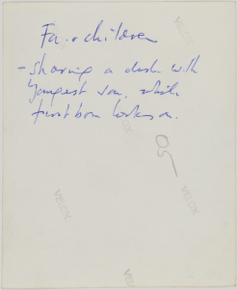 Fa. + children
- sharing a dish with
youngest son, while
first born looks on.
VELOX
VELOX
VELOX
VELOX
VELOX